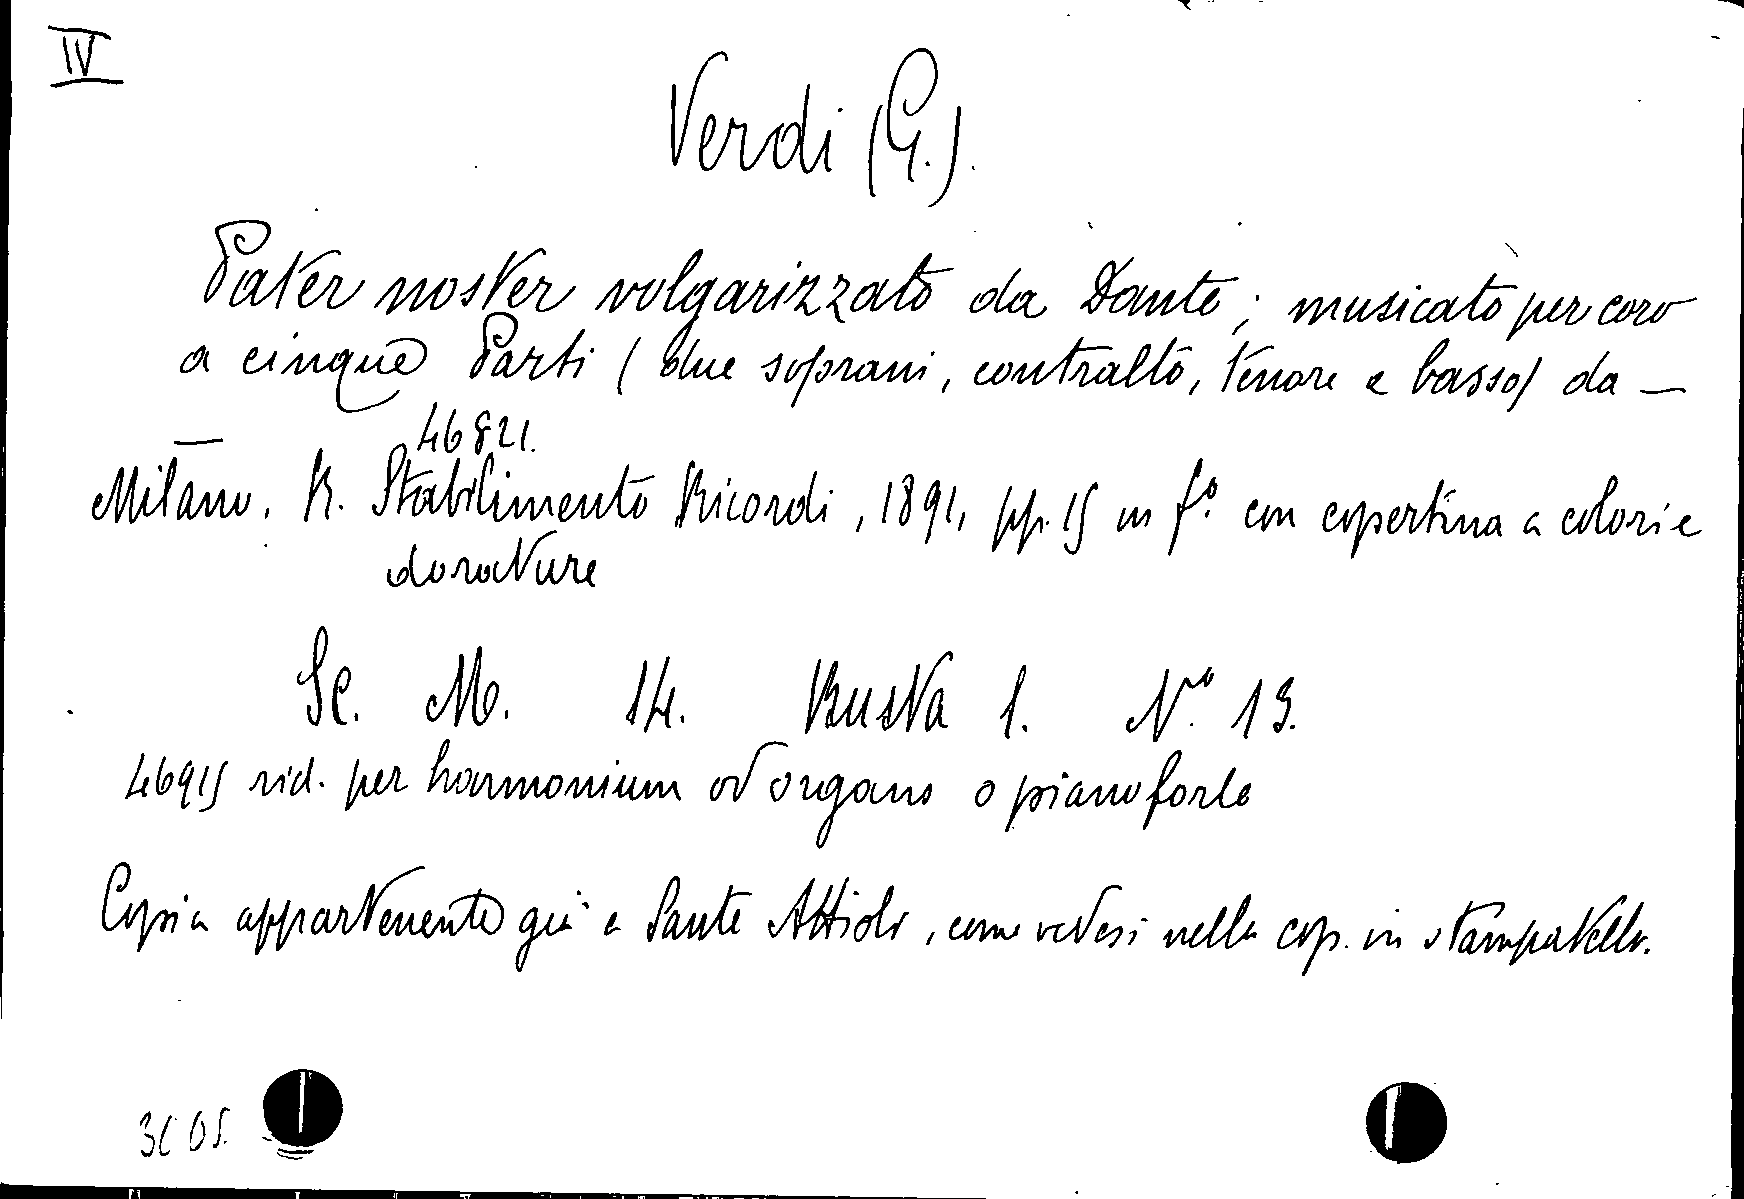 IV
Verdi (G.).
Pater noster volgarizzato da Dante; musicato per coro
a cinque Parti (due soprani, contralto, tenore e basso) da —
— 46821.
Milano, R. Stabilimento Ricordi, 1891, pp. 15 in f.º con copertina a colori e
dorature
Sc. M. 14. Busta 1. Nº 13.
46915 rid. per harmonium od organo o pianoforte
Copia appartenente già a Sante Attioli, come vedesi nella cop. in stampatello.